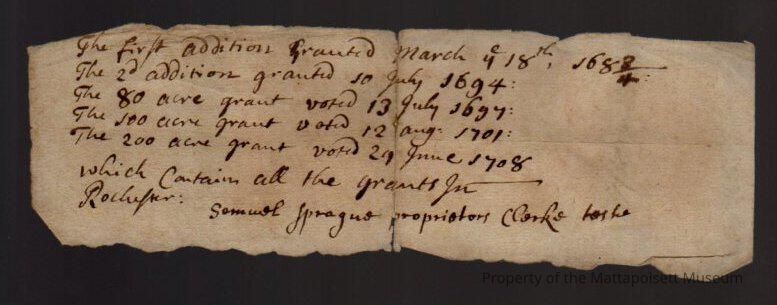 The first addition Granted March yᵉ 18th, 1683/4:
The 2d addition granted 10 July 1694:
The 80 acre grant voted 13 July 1697:
The 100 acre grant voted 12 aug: 1701:
The 200 acre grant voted 29 June 1708
which Contains all the grants In
Rochester:
Samuel Sprague proprietors Clerke teste
Property of the Mattapoisett Museum